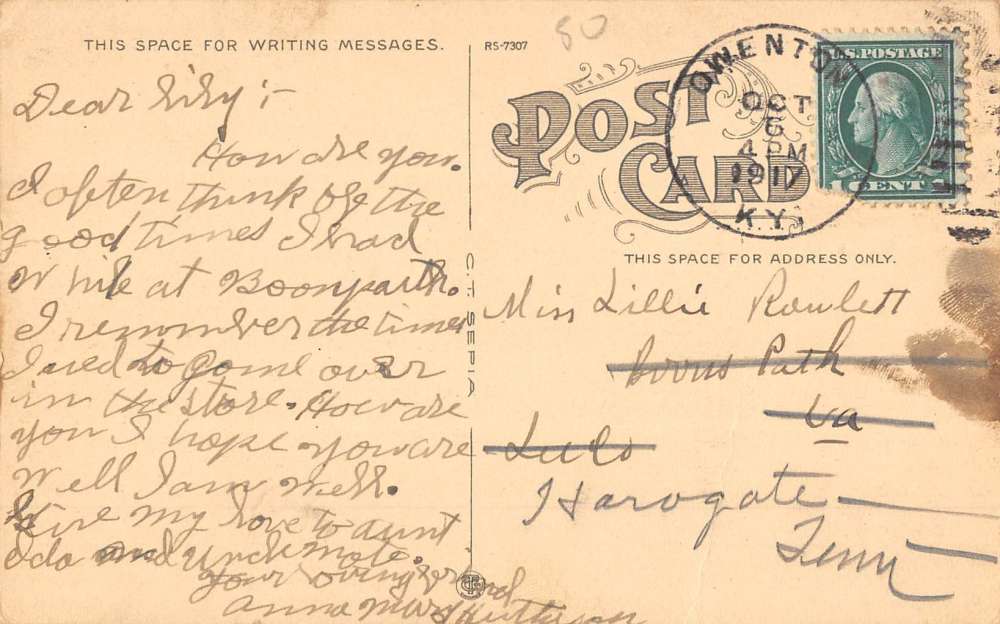 THIS SPACE FOR WRITING MESSAGES.
RS-7307
80
POST
CARD
OWENTON
OCT
6
4 PM
1917
KY.
U.S. POSTAGE
1 CENT
THIS SPACE FOR ADDRESS ONLY.
C.T. SEPIA
Dear
How are you.
I often think of the
good times I had
while at
I remember the times
I used to come over
in the store. How are
you I hope you are
well I am well.
Give my love to aunt
Oda and Uncle
your loving friend
Anna Mary
Miss Lillie Rowlett
Path
Va
Harogate
Tenn